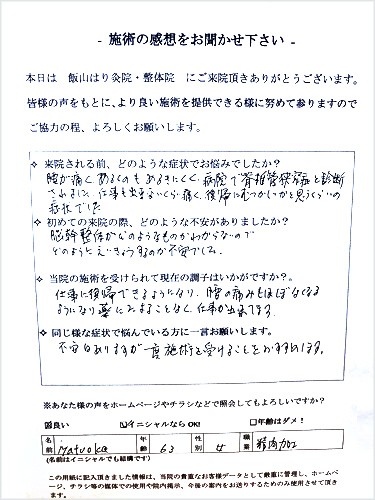 - 施術の感想をお聞かせ下さい -
本日は 飯山はり灸院・整体院 にご来院頂きありがとうございます。
皆様の声をもとに、より良い施術を提供できる様に努めて参りますので
ご協力の程、よろしくお願いします。
✧ 来院される前、どのような症状でお悩みでしたか?
痛く あるくのもあるきにくく 病院で脊柱管狭窄症と診断
されました。仕事も出来ないくらい痛く、復帰にむつかしいかと思うぐらいの
症状でした
✧ 初めての来院の際、どのような不安がありましたか?
整体がどのようなものかわからないので
どのようにえいきょうするのか不安でした。
✧ 当院の施術を受けられて現在の調子はいかがですか。
仕事に復帰できるようになり、の痛みもほぼなくなる
ようになり薬にたよることなく、仕事が出来てます。
✧ 同じような症状で悩んでいる方に一言お願いします。
不安はありますが一度施術を受けることをおすすめします。
※あなた様の声をホームページやチラシなどで照会してもよろしいですか?
☑良い ☑イニシャルならOK! □年齢はダメ!
名前 Matuoka 年齢 63 性別 女 職業 精肉加工
(名前はイニシャルでも結構です)
この用紙に記入頂きました情報は、当院の貴重なお客様データとして厳重に管理し、ホームペ
ージ、チラシ等の媒体での使用や院内掲示、今後の案内をお送りするためのみ使用させて頂き
ます。